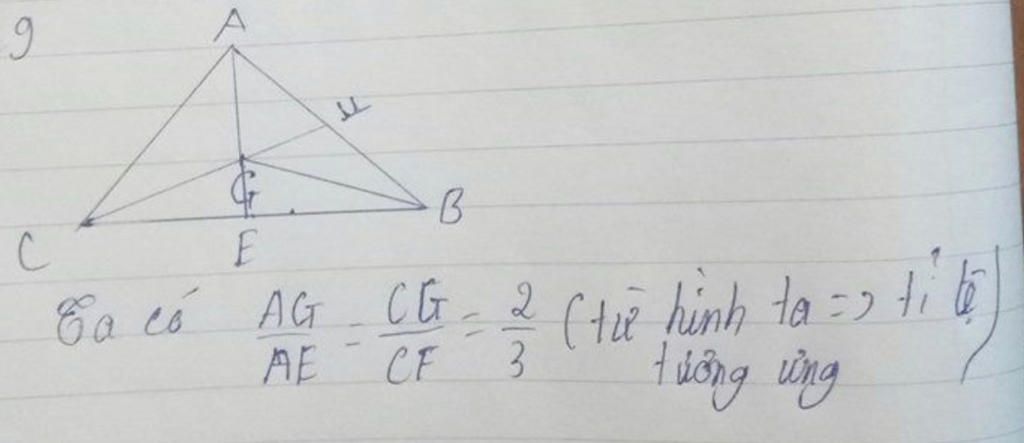 9
A
F
G
B
C
E
Ta có AG/AE = CG/CF = 2/3 (từ hình ta => tỉ lệ
tương ứng)